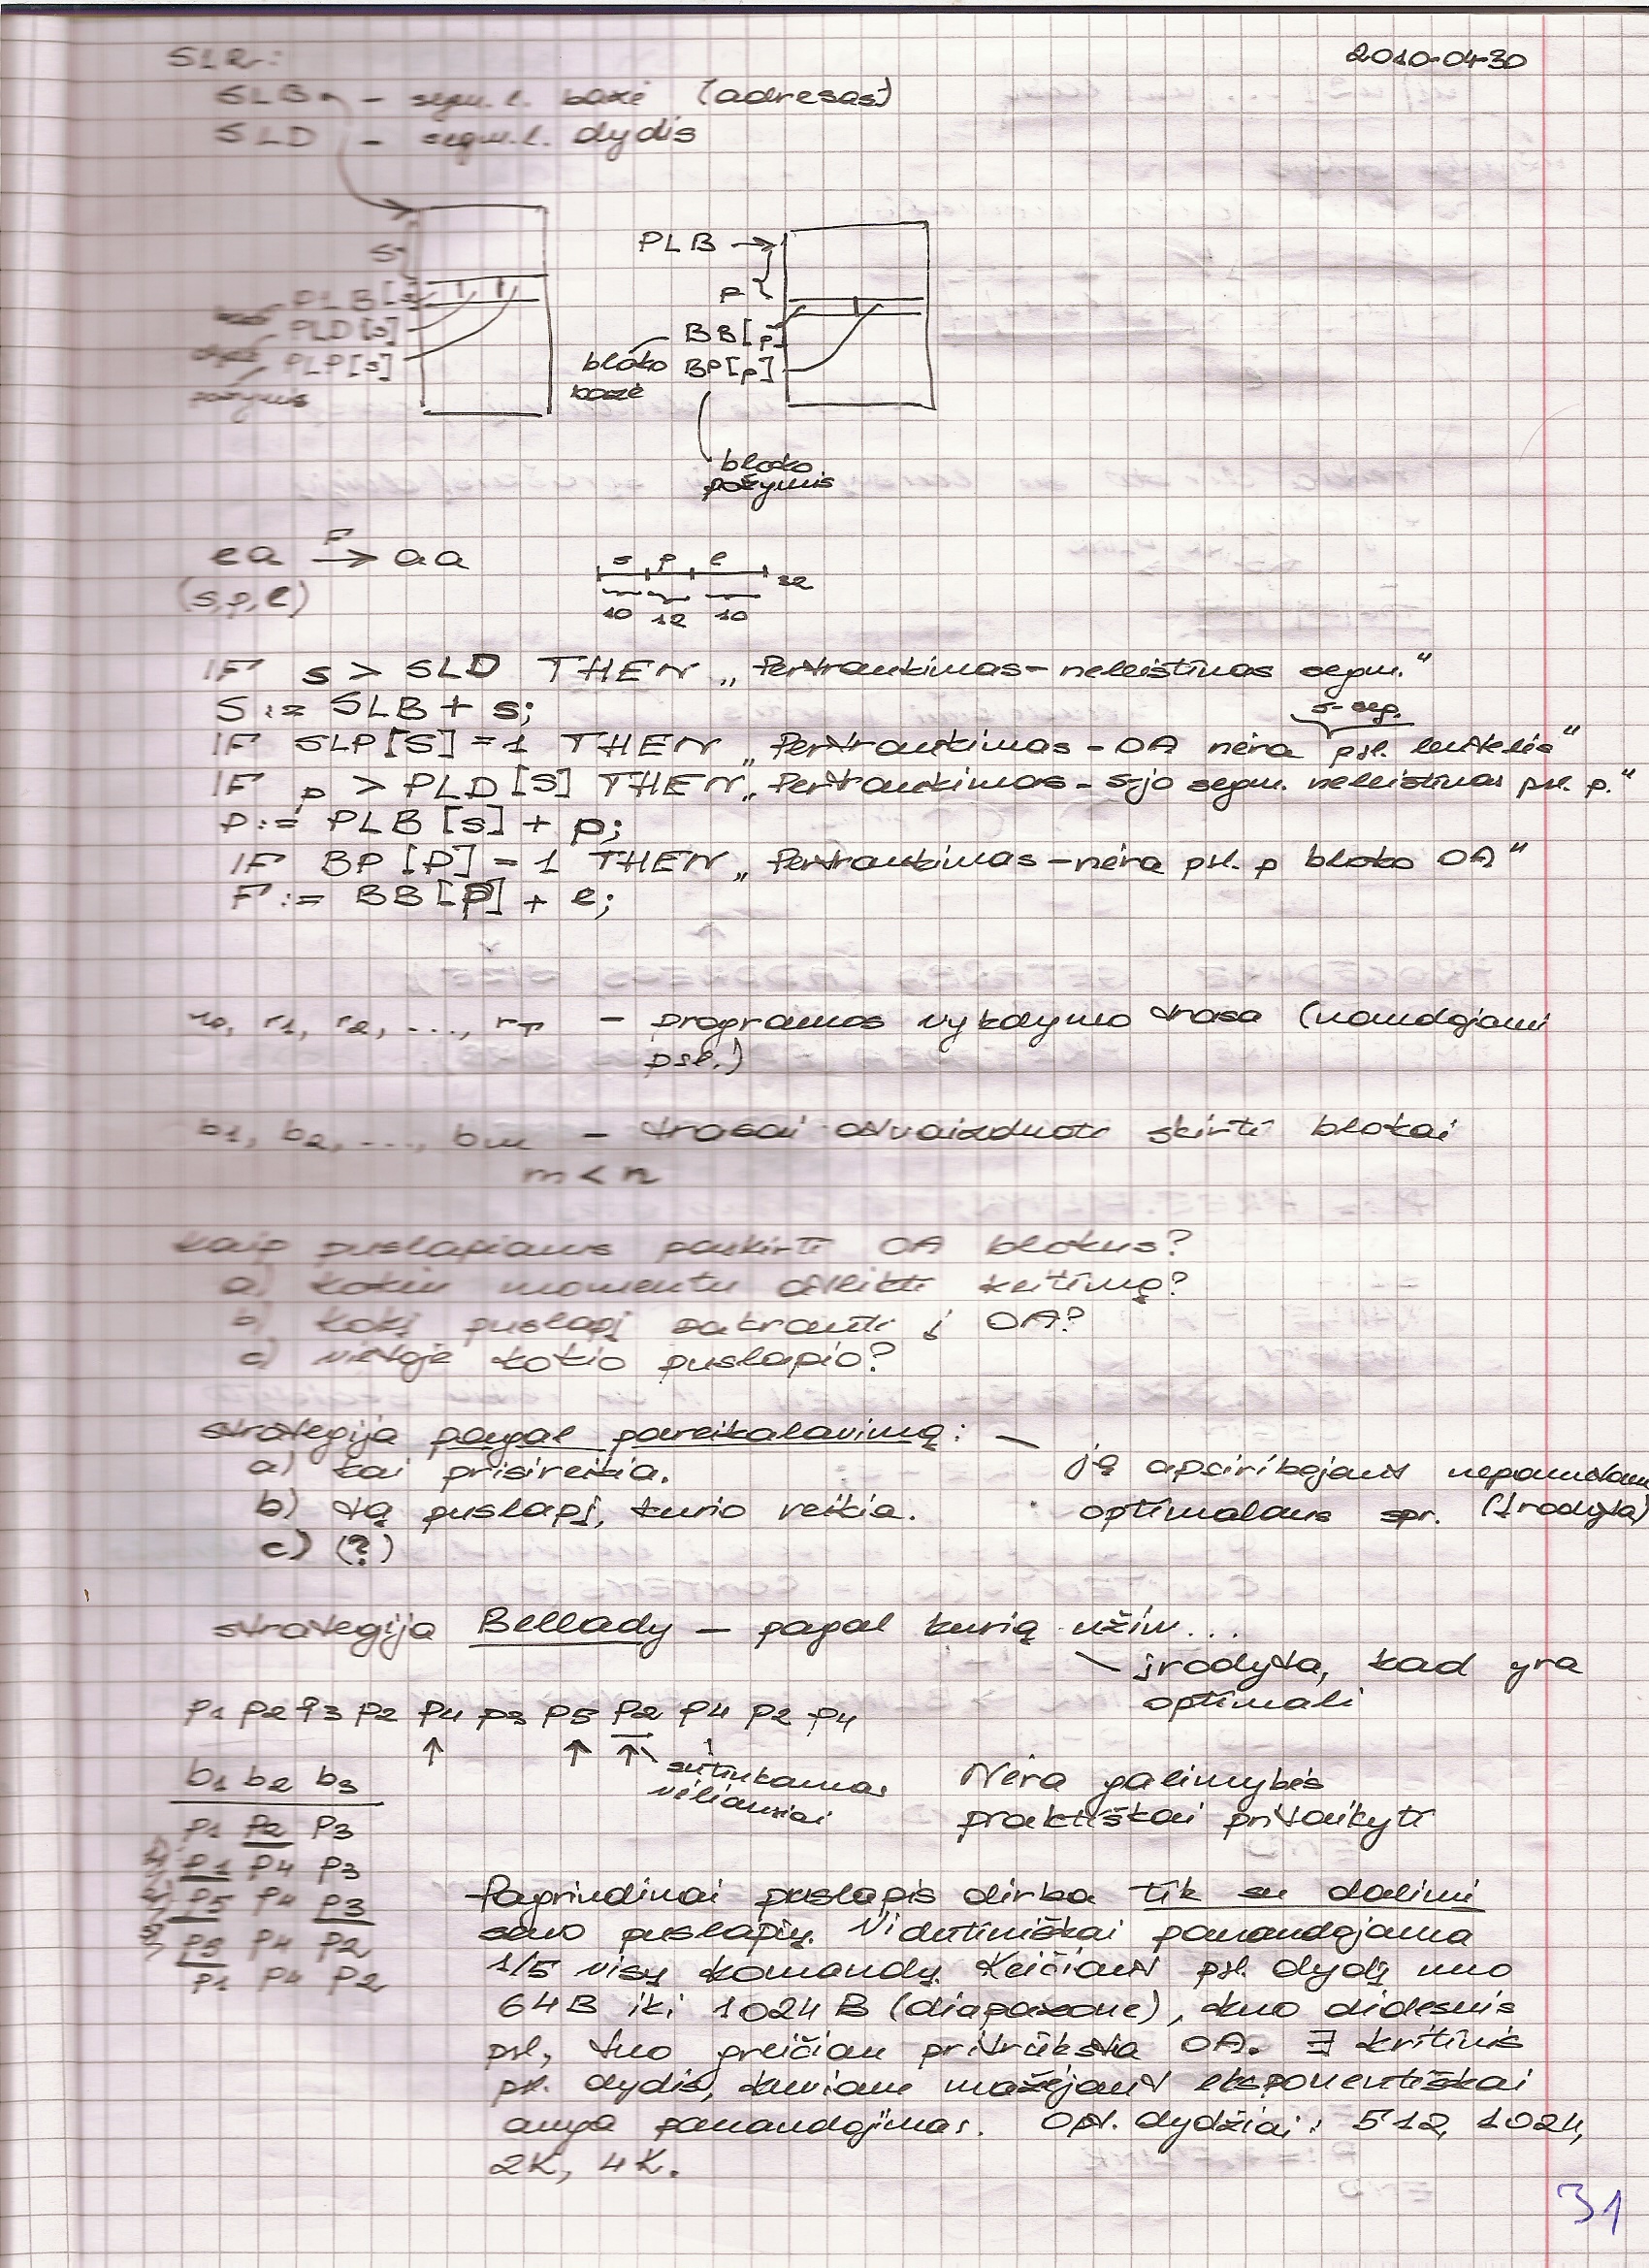 2010-04-30
SLR:
SLB - segm. l. bazė (adresas)
SLD - segm. l. dydis
s
PLB[s]
PLD[s]
dydis PLP[s]
požymis
PLB →
p
BB[p]
bloko BP[p]
bazė
bloko
požymis
F
ea → aa
(s,p,l)
s p l
32
10 12 10
IF s > SLD THEN „Pertraukimas - neleistinas segm.“
S := SLB + s;
s-seg.
IF SLP[S] = 1 THEN „Pertraukimas - OA nėra psl. lentelės“
IF p > PLD[S] THEN „Pertraukimas - s-jo segm. neleistinas psl. p.“
P := PLB[s] + p;
IF BP[P] = 1 THEN „Pertraukimas - nėra psl. p bloko OA“
F := BB[P] + l;
r0, r1, r2, ..., rT - programos vykdymo trasa (naudojami
psl.)
b1, b2, ..., bm - trasai atvaizduoti skirti blokai
m < n
Kaip puslapiams paskirti OA blokus?
a) kokiu momentu atlikti keitimą?
b) kokį puslapį pakrauti į OA?
c) vietoje kokio puslapio?
strategija pagal pareikalavimą: -
a) kai prisireikia.
b) tą puslapį, kurio reikia.
c) (?)
ją apsiribojant nepametam
optimalaus spr. (įrodyta)
strategija Bellady - pagal kurią užim...
įrodyta, kad yra
optimali
p1 p2 p3 p2 p4 p3 p5 p2 p4 p2 p4
↑ ↑ ↑
sutinkamas
vėliausiai
b1 b2 b3
p1 p2 p3
1) p1 p4 p3
2) p5 p4 p3
3) p5 p4 p2
p1 p4 p2
Nėra galimybės
praktiškai pritaikyti
Pagrindinai puslapis dirba tik su dalimi
savo puslapių. Vidutiniškai panaudojama
1/5 visų komandų. Keičiant psl. dydį nuo
64B iki 1024B (diapazone), kuo didesnis
psl, tuo greičiau pritrūksta OA. ∃ kritinis
psl. dydis, kuriam mažėjant eksponentiškai
auga panaudojimas. Opt. dydžiai: 512, 1024,
2K, 4K.
31